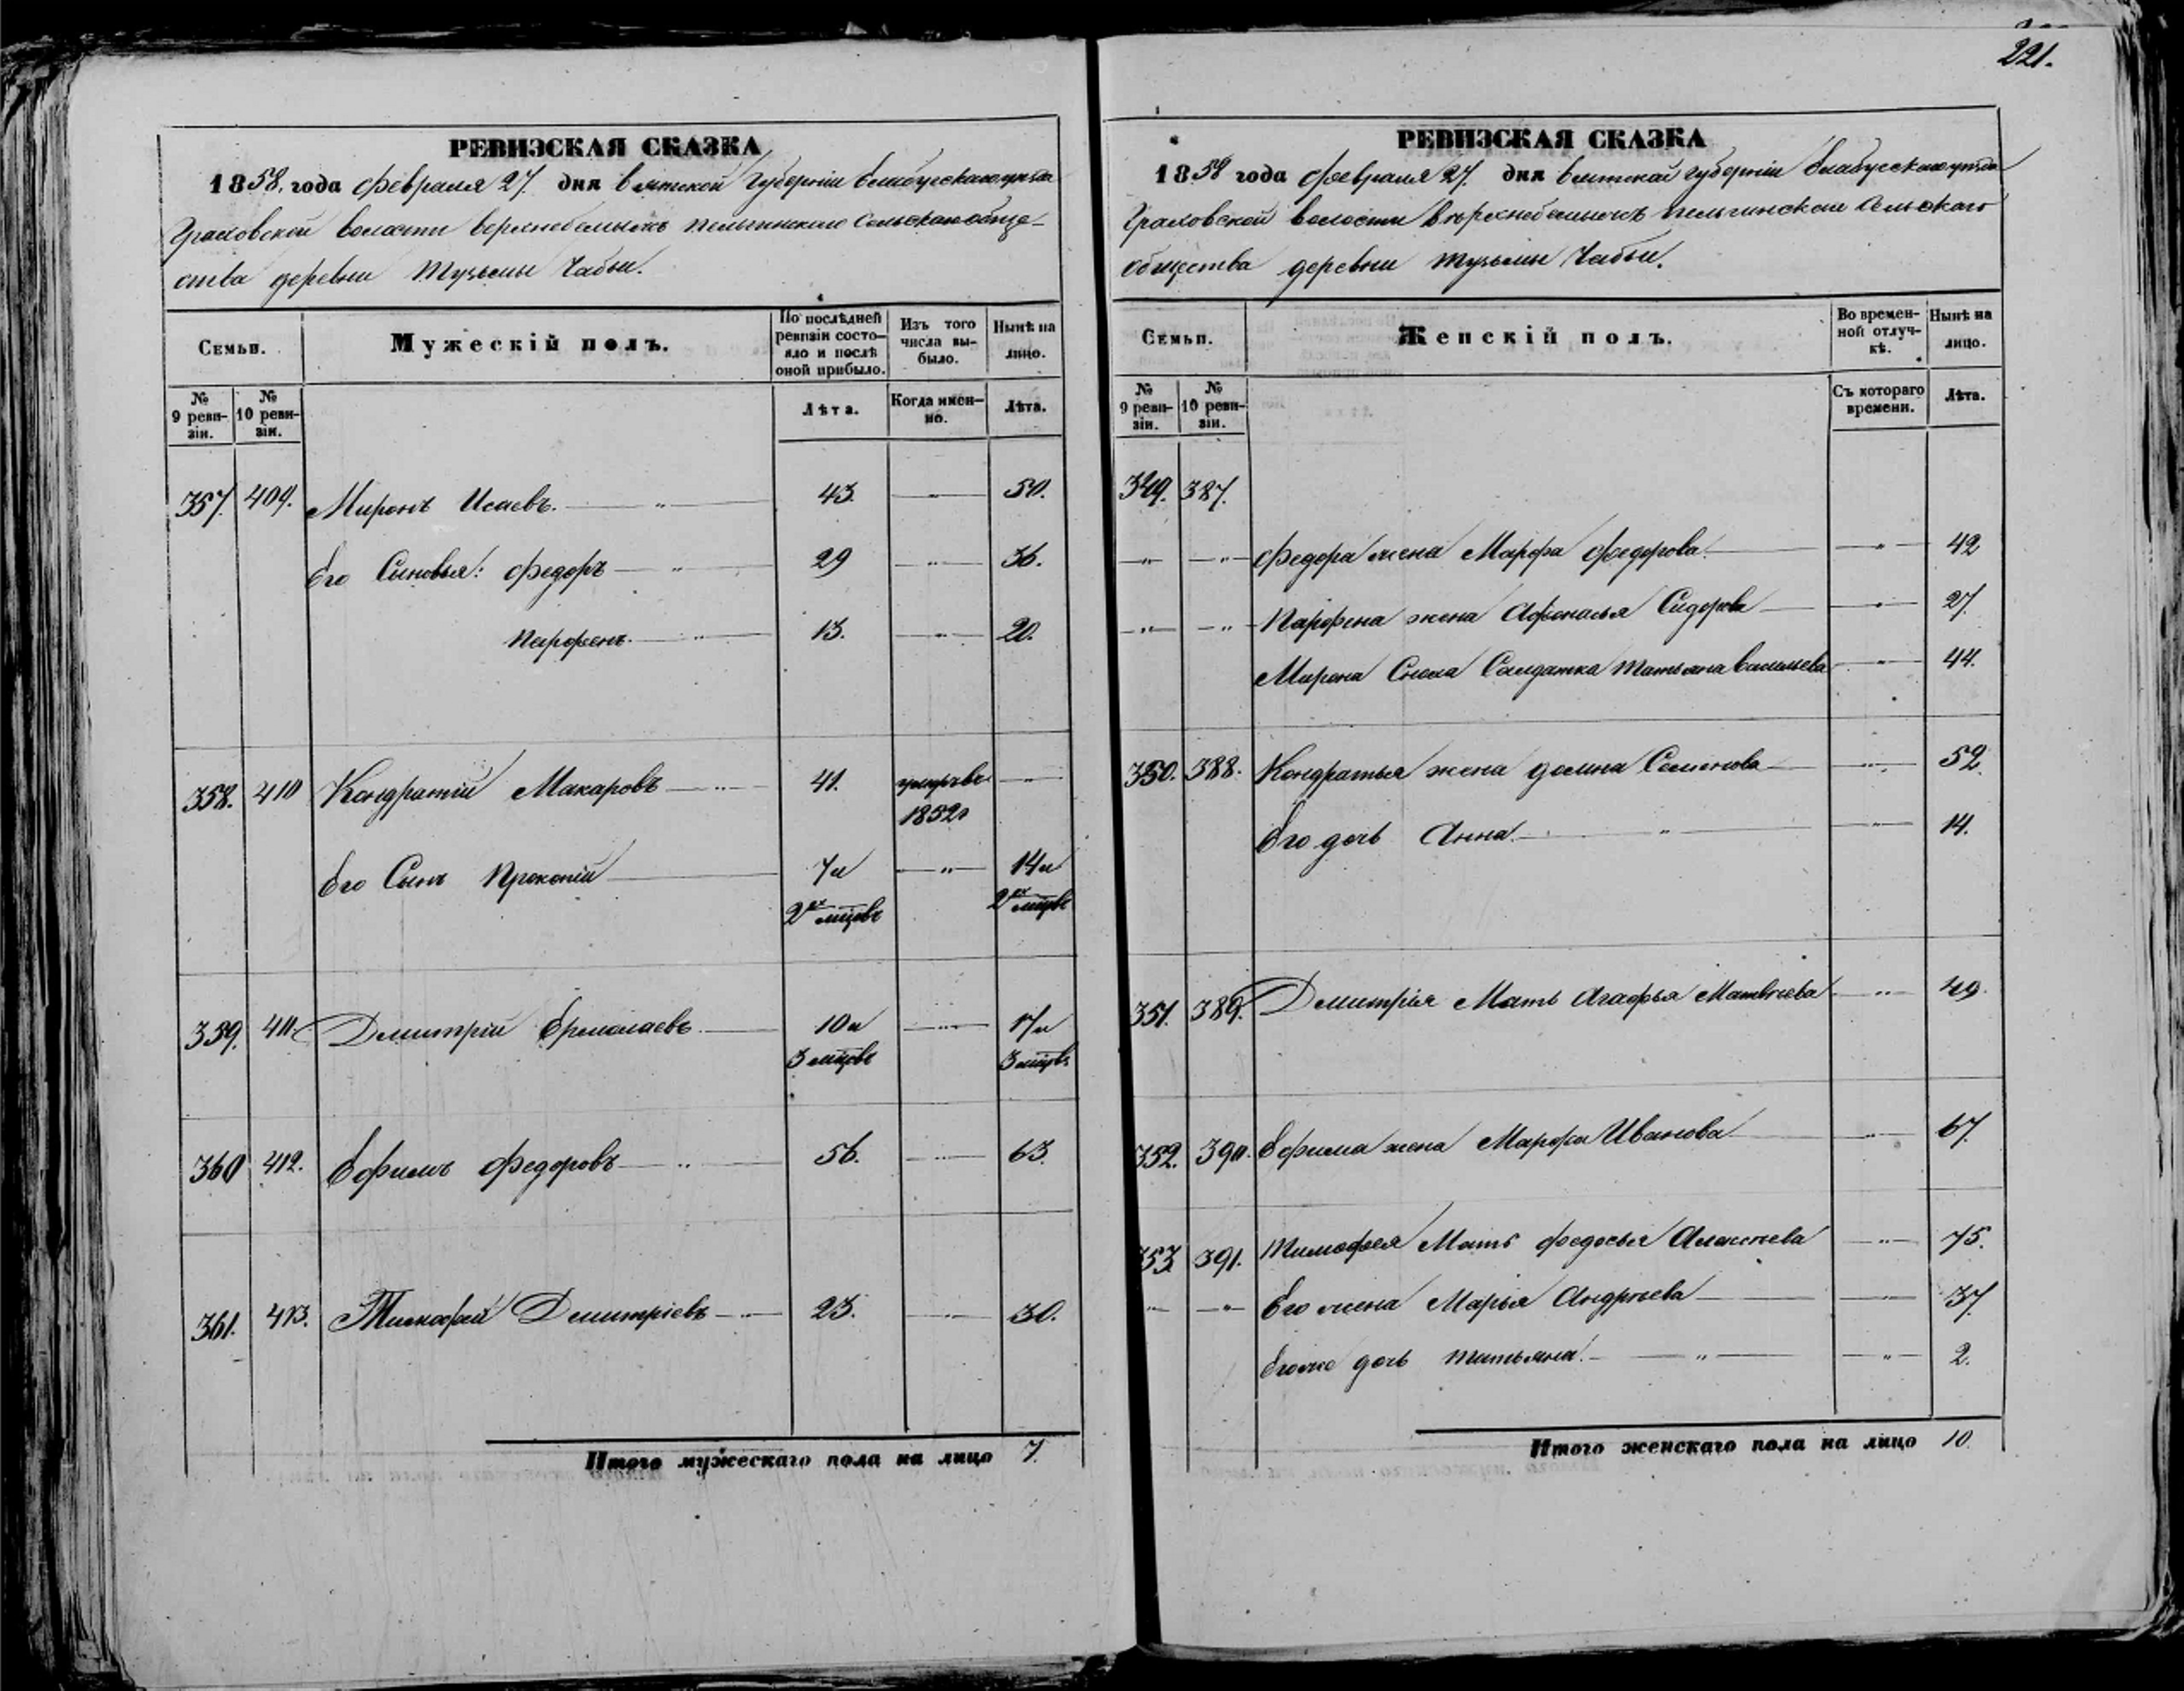 221.
РЕВИЗСКАЯ СКАЗКА
1858. года февраля 27. дня Вятской Губерніи Елабужскаго уѣзда
Граховской волости
ства деревни Чабьи.
Семьи.
Мужескій полъ.
По послѣдней ревизіи состояло и послѣ оной прибыло.
Изъ того числа выбыло.
Нынѣ на лицо.
№ 9 ревизіи.
№ 10 ревизіи.
Лѣта.
Когда именно.
Лѣта.
357. 409. Миронъ Исаевъ. 43. 50.
Его Сыновья: Федоръ 29 36.
Парфенъ. 13. 20.
358. 410 Кондратій Макаровъ 41. умеръ въ
1852
Его Сынъ Прокопій 7 и 14 и
2ух мцовъ 2ух мцовъ
359. 411. Дмитрій Ермолаевъ 10 и 17 и
3 мцовъ 3 мцовъ
360 412. Ефимъ Федоровъ 56. 63.
361. 413. Тимофей Дмитріевъ 23. 30.
Итого мужескаго пола на лицо 7.
РЕВИЗСКАЯ СКАЗКА
1858 года февраля 27. дня Вятской губерніи Елабужскаго уѣзда
Граховской волости Сельскаго
общества деревни Чабьи.
Семьи.
Женскій полъ.
Во временной отлучкѣ.
Нынѣ на лицо.
№ 9 ревизіи.
№ 10 ревизіи.
Съ котораго времени.
Лѣта.
349. 387.
Федора жена Марфа Федорова 42
Парфена жена Афонасья Сидорова 27.
Мирона Сноха Солдатка Татьяна Васильева 44.
350. 388. Кондратья жена Домна Семенова 52.
Его дочь Анна. 14.
351. 389. Дмитрія Мать Агафья Матвѣева 49.
352. 390. Ефима жена Марфа Иванова 67.
353 391. Тимофея Мать Федосья Алексѣева 75.
Его жена Марья Андрѣева 37.
Его же дочь Татьяна. 2.
Итого женскаго пола на лицо 10